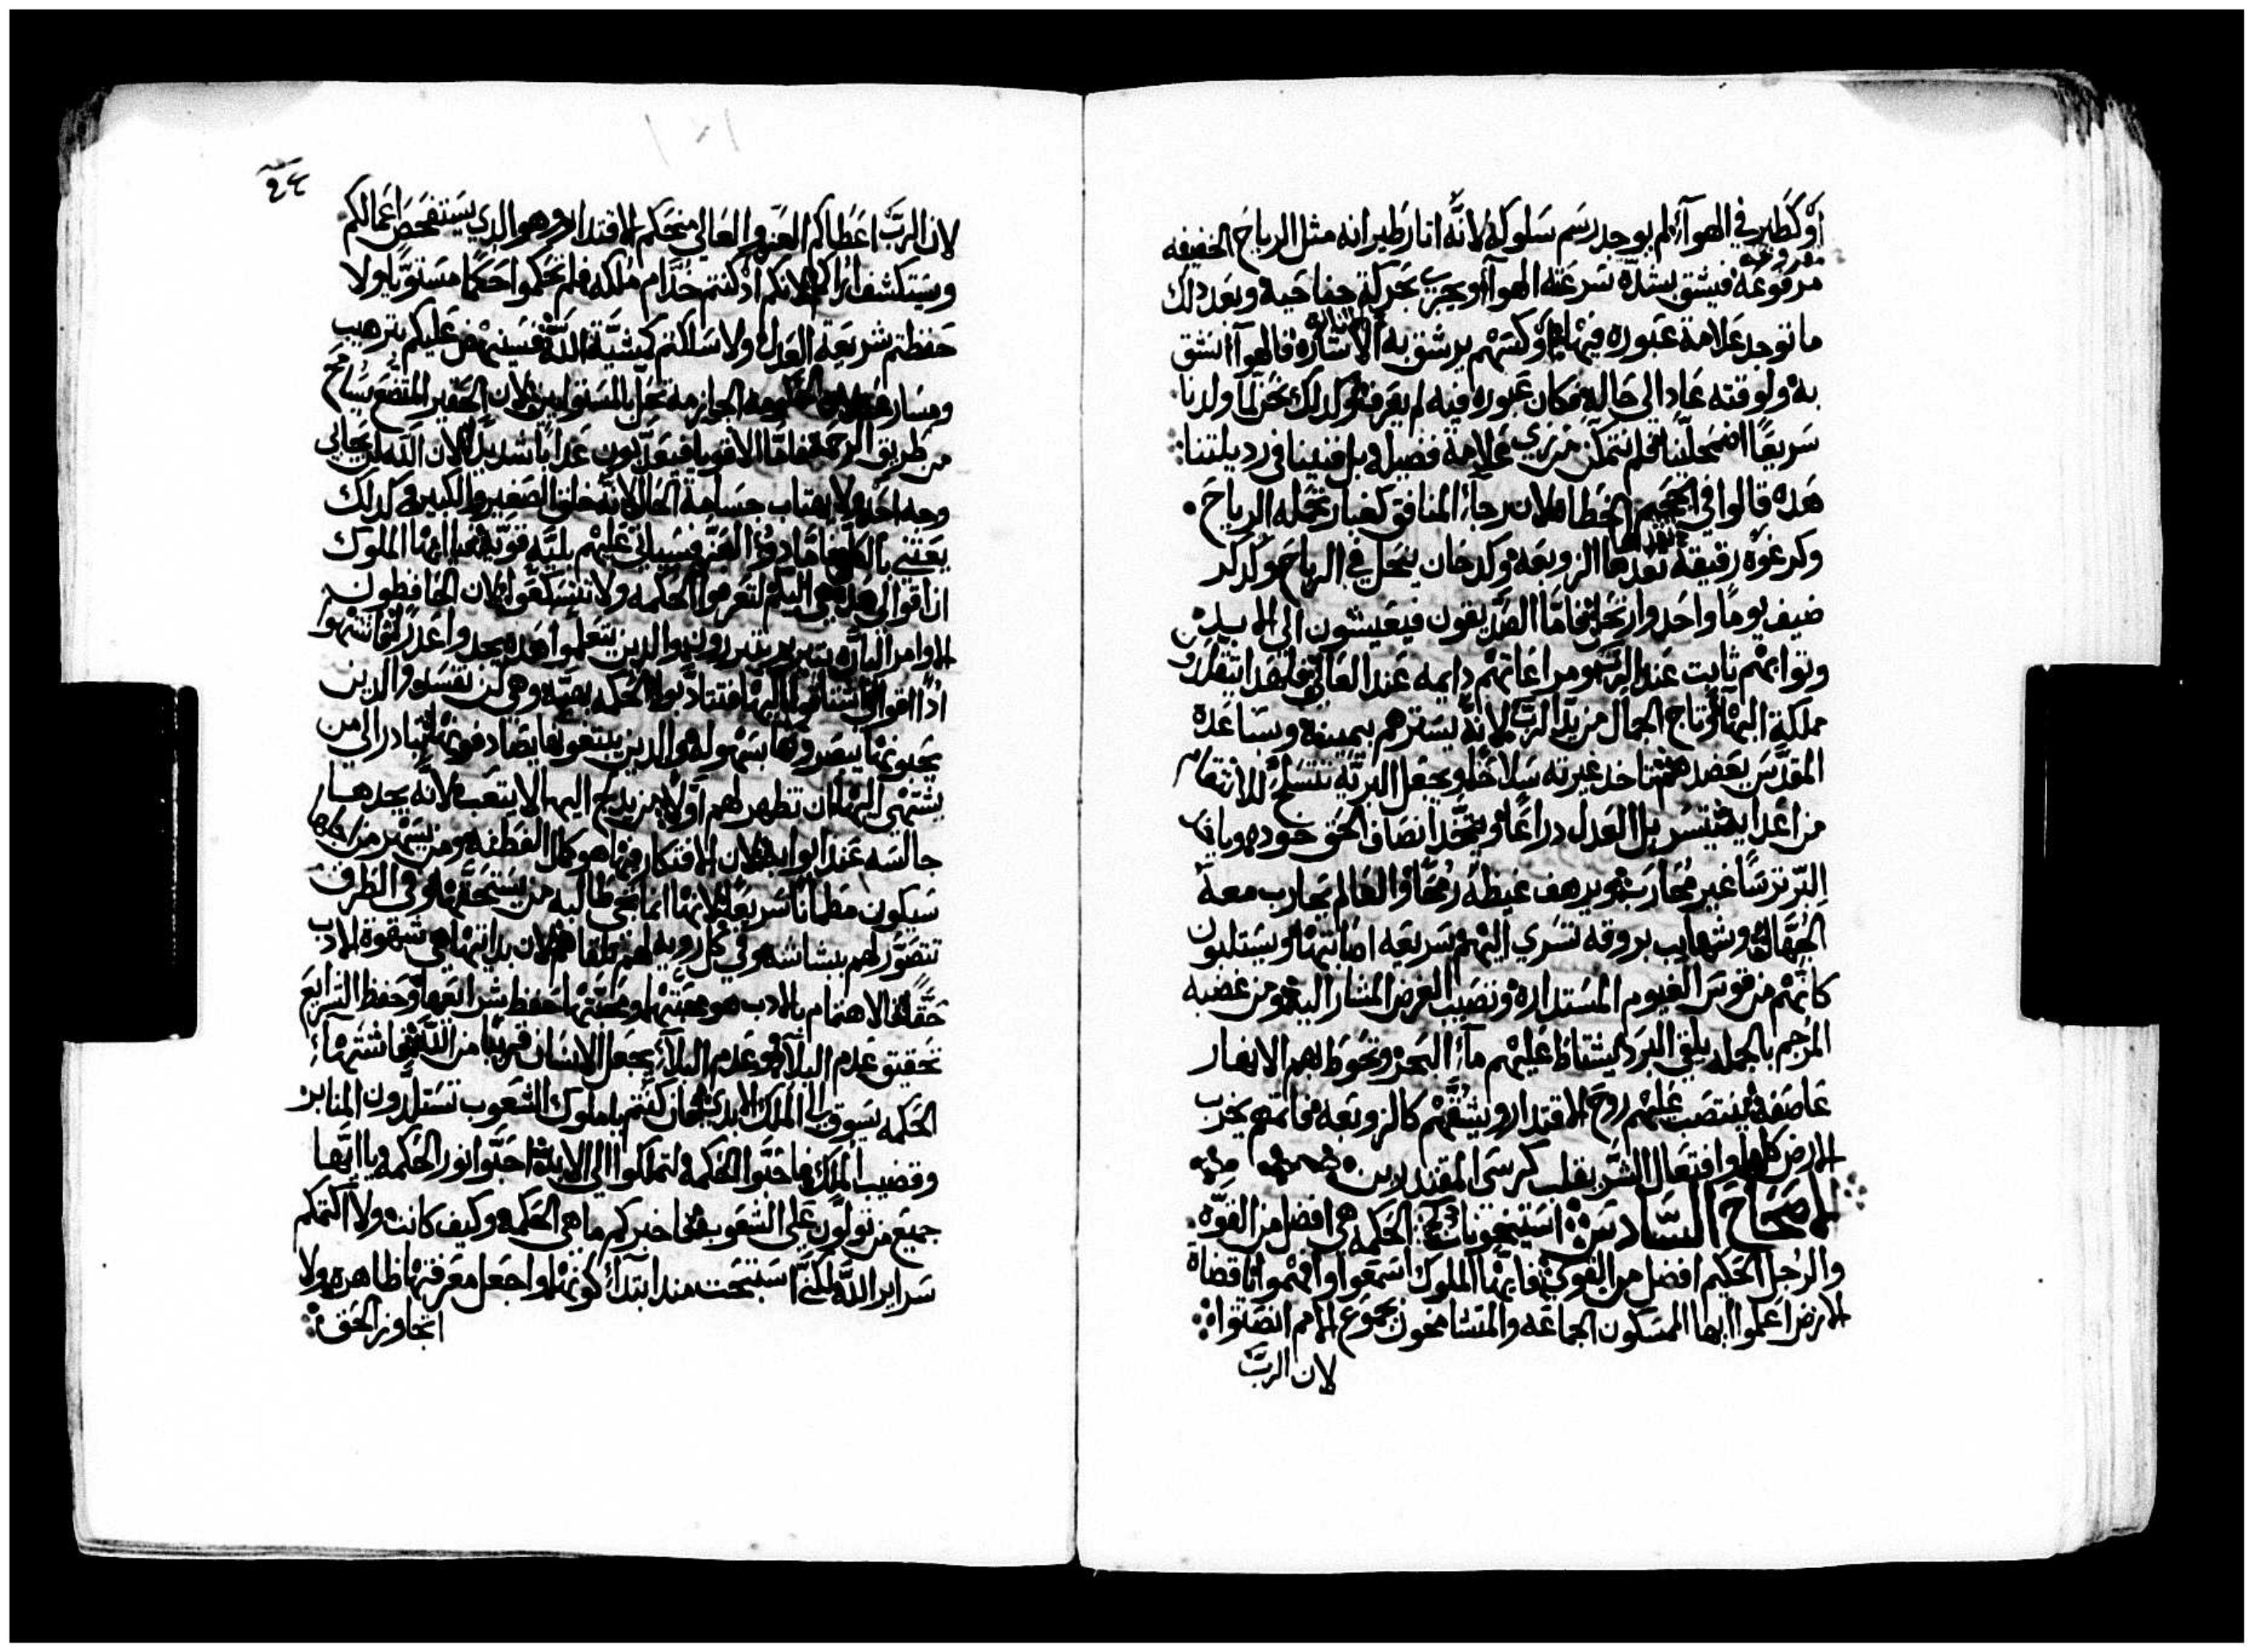 أو كطاير في الهوآء لم يوجد رسم سلوكه لانه انار طيرانه مثل الرياح الخفيفه
مقروعه
مرفوعة فيشق بشدة سرعته الهوآء ويجري بحركة جناحيه وبعد ذلك
ما توجد علامة عبوره فيها او كسهم يرشق به الى الاشاره فالهوآ انشق
به ولوقته عاد الى حاله فكان عبوره فيه لم يعرف كذلك نحن لما ولدنا
سريعًا اضمحلينا فلم نتمكن من نري علامة فضيله بل فنينا في رديلتنا
هذه قالوا في الجحيم الخطاه لان رجاء المنافق كغبار تحمله الرياح
وكرغوه رقيقة تعدها الزوبعه وكدخان ينحل في الرياح وكدكر
ضيف يومًا واحد وارتحل فاما الصديقون فيعيشون الى الابد
وثوابهم ثابت عند الرب ومراعاتهم دايمه عند العالي فلهذا يتقلدون
مملكة البهآء وتاج الجمال من يد الرب لانه يسترهم بيمينه وبساعده
المقدس يعضدهم تتاخد غيرته سلاحًا ويجعل البريه تتسلح للانتقام
من اعدايه يتسربل العدل دراعًا ويتخد انصاف الحق خوده وياخد
البر ترسًا غير محارب ويرهف غيظه رمحًا والعالم يحارب معه
الجهال وشهايب بروقه تسري اليهم سريعه اصابتها ويستلبون
كانهم من قوس الغيوم المستداره ونصيب الغرض المشار اليه ومن غضبه
المرجم بالجمله يلقي البرد يشتاظ عليهم مآء البحر وتحوط بهم الانهار
عاصفة ينتصب عليهم روح الاقتدار ويشقهم كالزوبعه فاتمهم يخرب
الارض كلها وافتعال الشر يقلب كرسى المقتدرين
الاصحاح السادس استيفتونات الحكمه هي افضل من القوه
والرجل الحكيم افضل من القوي فايها الملوك اسمعوا وافهموا يا قضاة
الارض اعلموا ايها الممسكون الجماعه والمتشامخون بجموع الامم انصتوا
لان الرب
٩٤
لان الرب اعطاكم العز والعالي منحكم الاقتدار وهو الدي يستفحص اعمالكم
ويستكشف ارآكم لانكم اذ كنتم خدام ملكه فلم تحكموا حكمًا مستويًا ولا
حفظتم شريعة العدل ولا سلكتم كمشية الله فسينهض عليكم بترهيب
ومسارعه لان الحكومه الجازمه تحل بالمستولين لان الحقير المتضع يسامح
من طريق الرحمة فاما الاقويا فيعذبون عدابًا شديدًا لان الله لن يحابي
وجه احد ولا يهتاب جسامة الحال لانه خلق الصغير والكبير وكدلك
يعتني بالكل فاما دوو العز فسياتي عليهم بليه قويه فيا ايها الملوك
ان اقوالي هده هي اليكم لتعرفوا الحكمه ولا تتسكعوا لان الحافظون
الاوامر الباره ببر يتبررون والدين يتعلموا هده يجدوا عدرًا فاشتهوا
ادًا اقوالي اشتاقوا اليها فتتادبوا الحكمه بهيه وهي لن تفسد والدين
يحبونها يبصروها بسهوله والدين يبتغونها يصادفونها تبادر الى من
يشتهي اليها ان تظهر لهم اولًا من يدلج اليها لا يتعب لانه يجدها
جالسه عند ابوابه لان الافتكار فيها هو كمال الفطنه ومن يسهر من اجلها
سيكون مطمانًا سريعًا لانها انما تجي طالبه من يستحقها وفي الطرف
تتصور لهم ببشاشه وفي كل رويه لهم تلقاهم لان بدايتها هي شهوة الادب
حقًا والاهتمام بالادب هو محبتها ومحبتها حفظ شرايعها وحفظ الشرايع
تحقيق عدم البلآء وعدم البلآء يجعل الانسان قريبًا من الله فاشتهاء
الحكمه يسوق الى الملك الابدي فان كنتم يا ملوك الشعوب تستلدون المنابر
وقضيب الملك فاحبوا الحكمه لتملكوا الى الابد احبوا نور الحكمه يا ايها
جميع من تولون على الشعوب فاخبركم ما هي الحكمه وكيف كانت ولا اكتمكم
سراير الله لكني استبحت مند ابتدآء كونها واجعل معرفتها ظاهره ولا
اتجاوز الحق